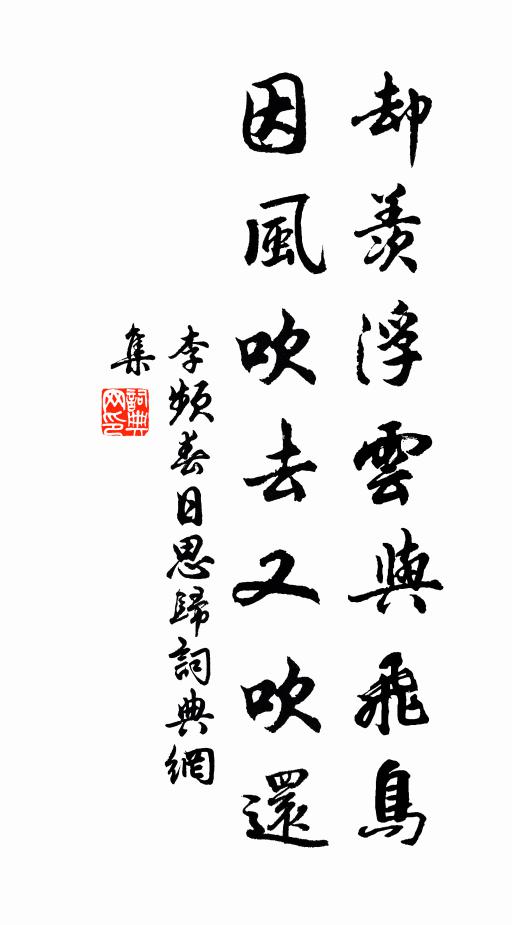 却羨浮雲與飛鳥
因風吹去又吹還
李頻春日思歸詞典網
集
詞典
网印